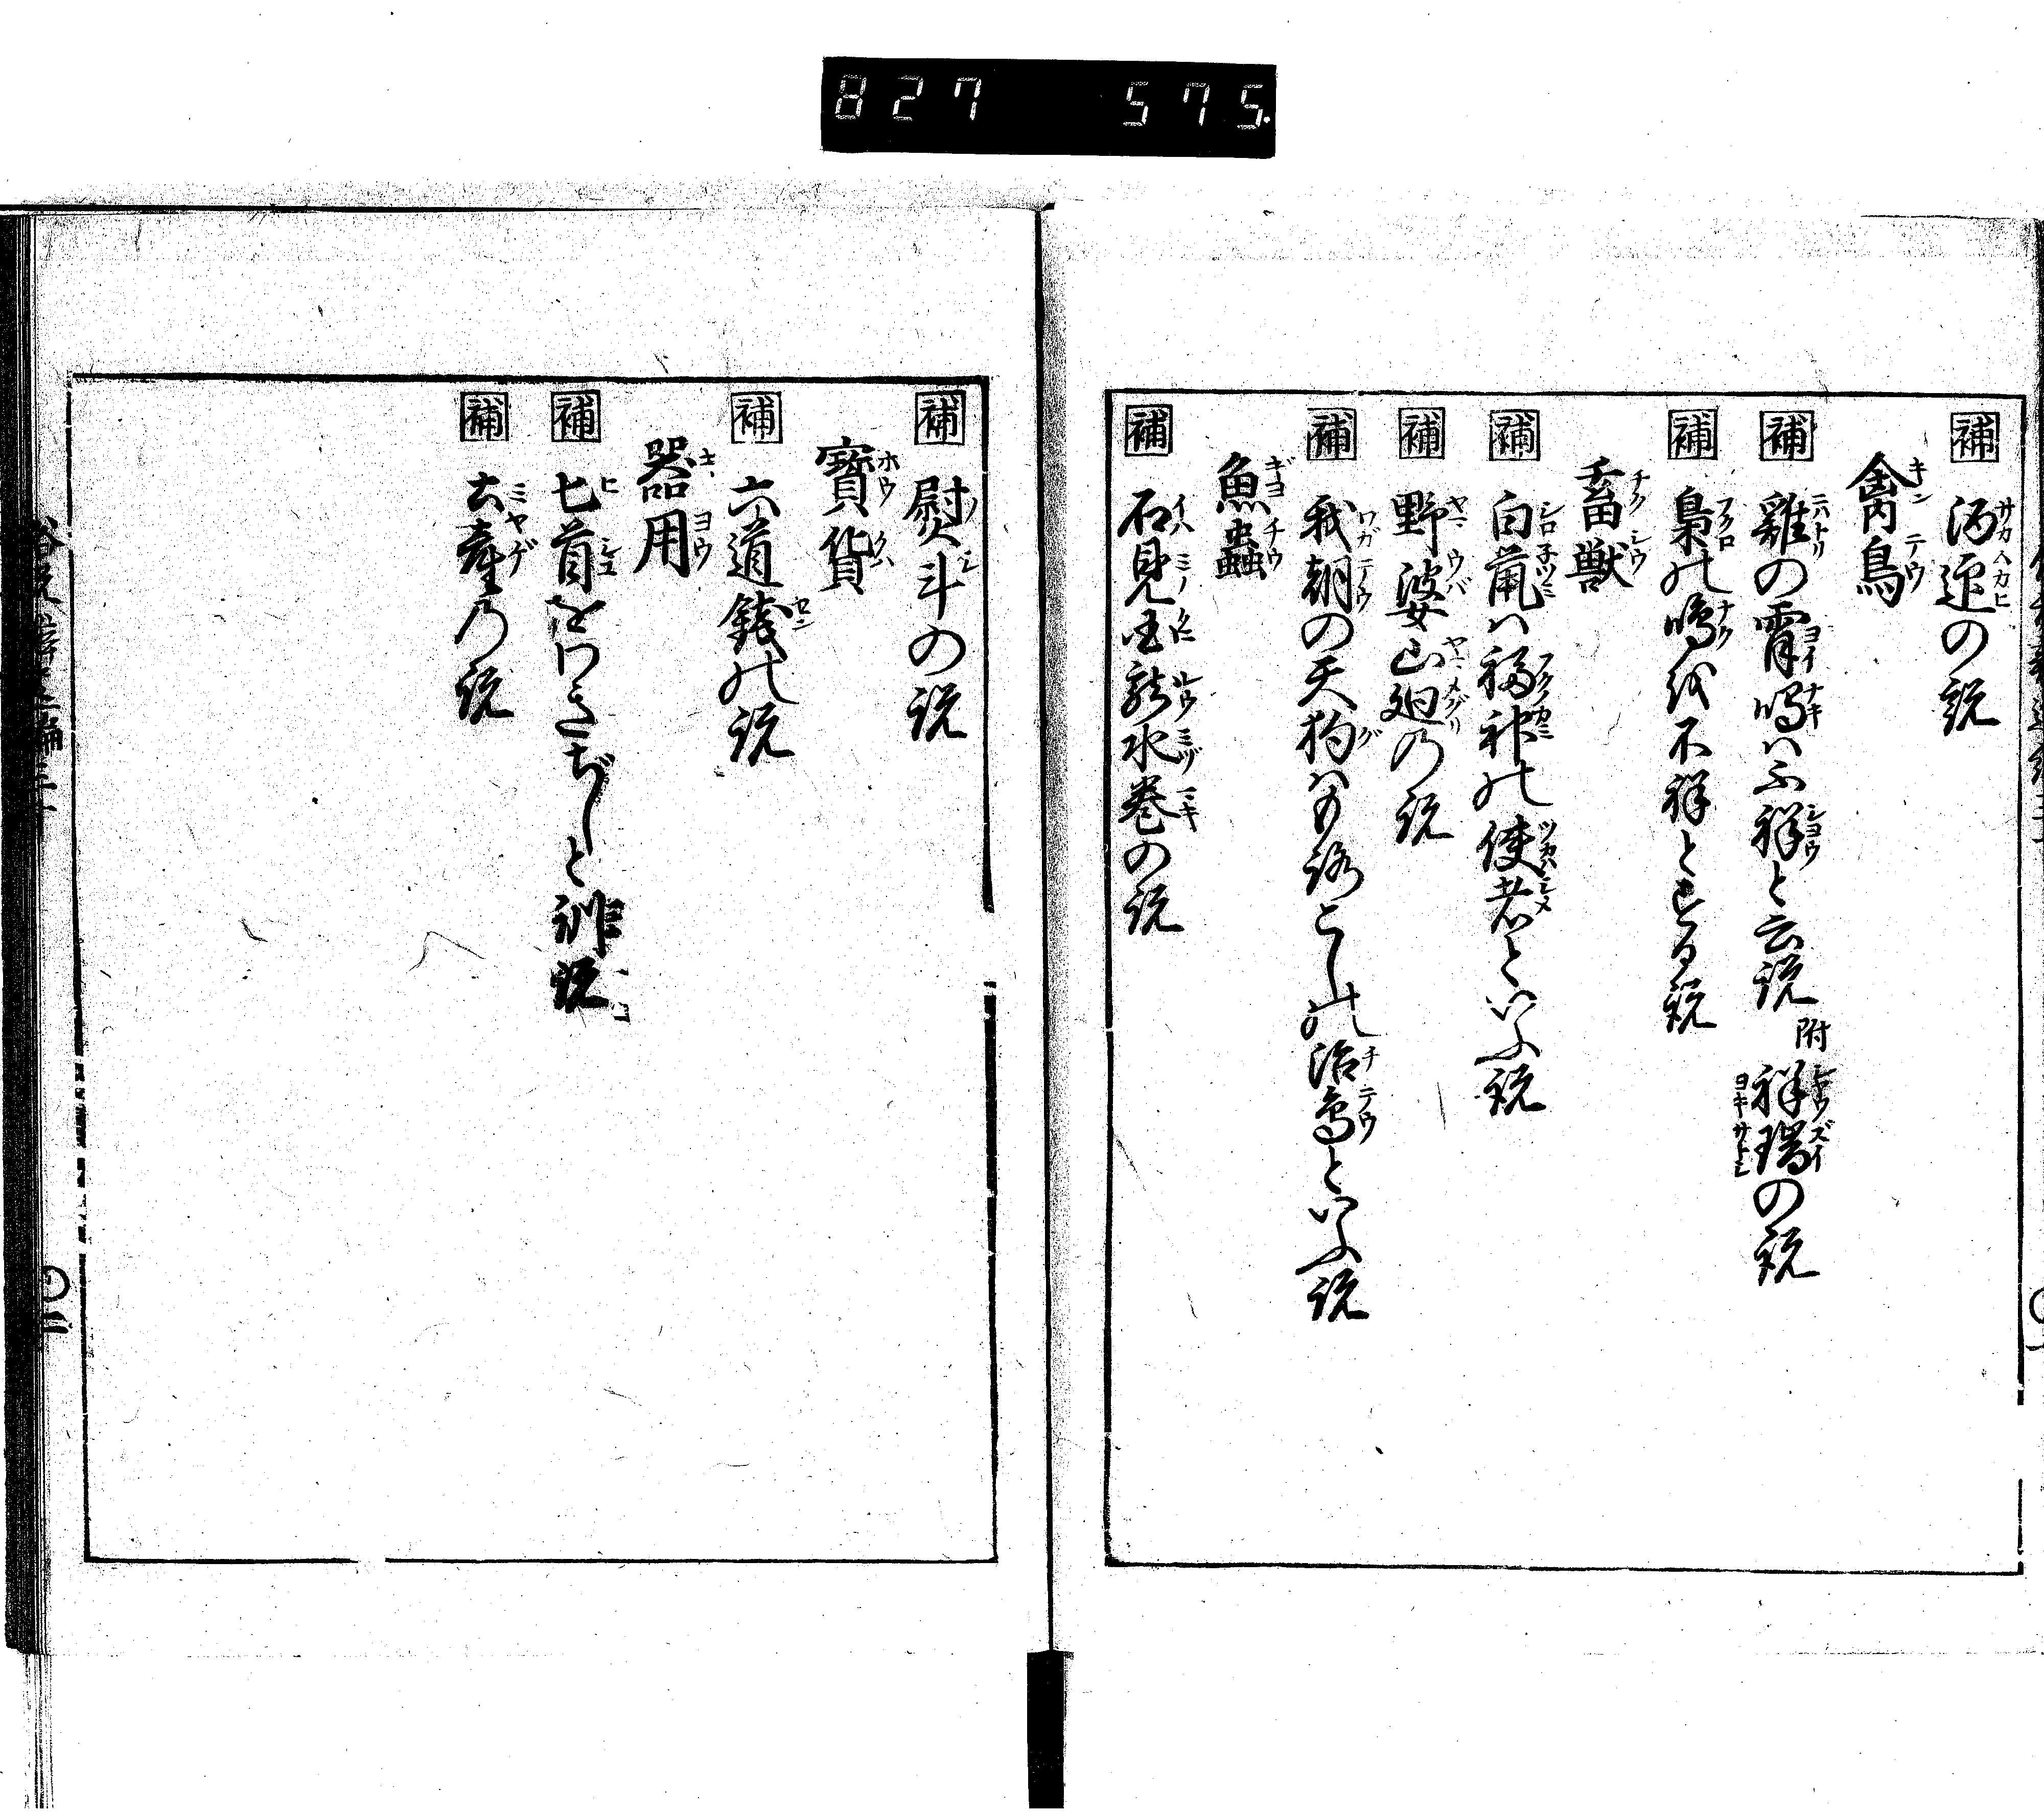 827 575.
補 酒迎の説
禽鳥
補 雞の宵鳴ハ不祥と云説 附 祥瑞の説
補 梟の鳴を不祥とする説
畜獣
補 白鼠ハ福神の使者といふ説
補 野婆山廻の説
補 我朝の天狗ハもろこしの治鳥といふ説
魚蟲
補 石見国龍水巻の説
補 熨斗の説
寶貨
補 六道銭の説
器用
補 匕首をわきざしと訓説
補 土産の説